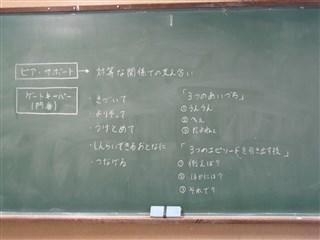 ピア・サポート → 対等な関係での支え合い
ゲートキーパー
(門番)
・きづいて
・よりそって
・うけとめて
・しんらいできるおとなに
・つなげる
「3つのあいづち」
①うんうん
②へぇ
③だよねぇ
「3つのエピソードを引き出す技」
①例えば?
②ほかには?
③それで?